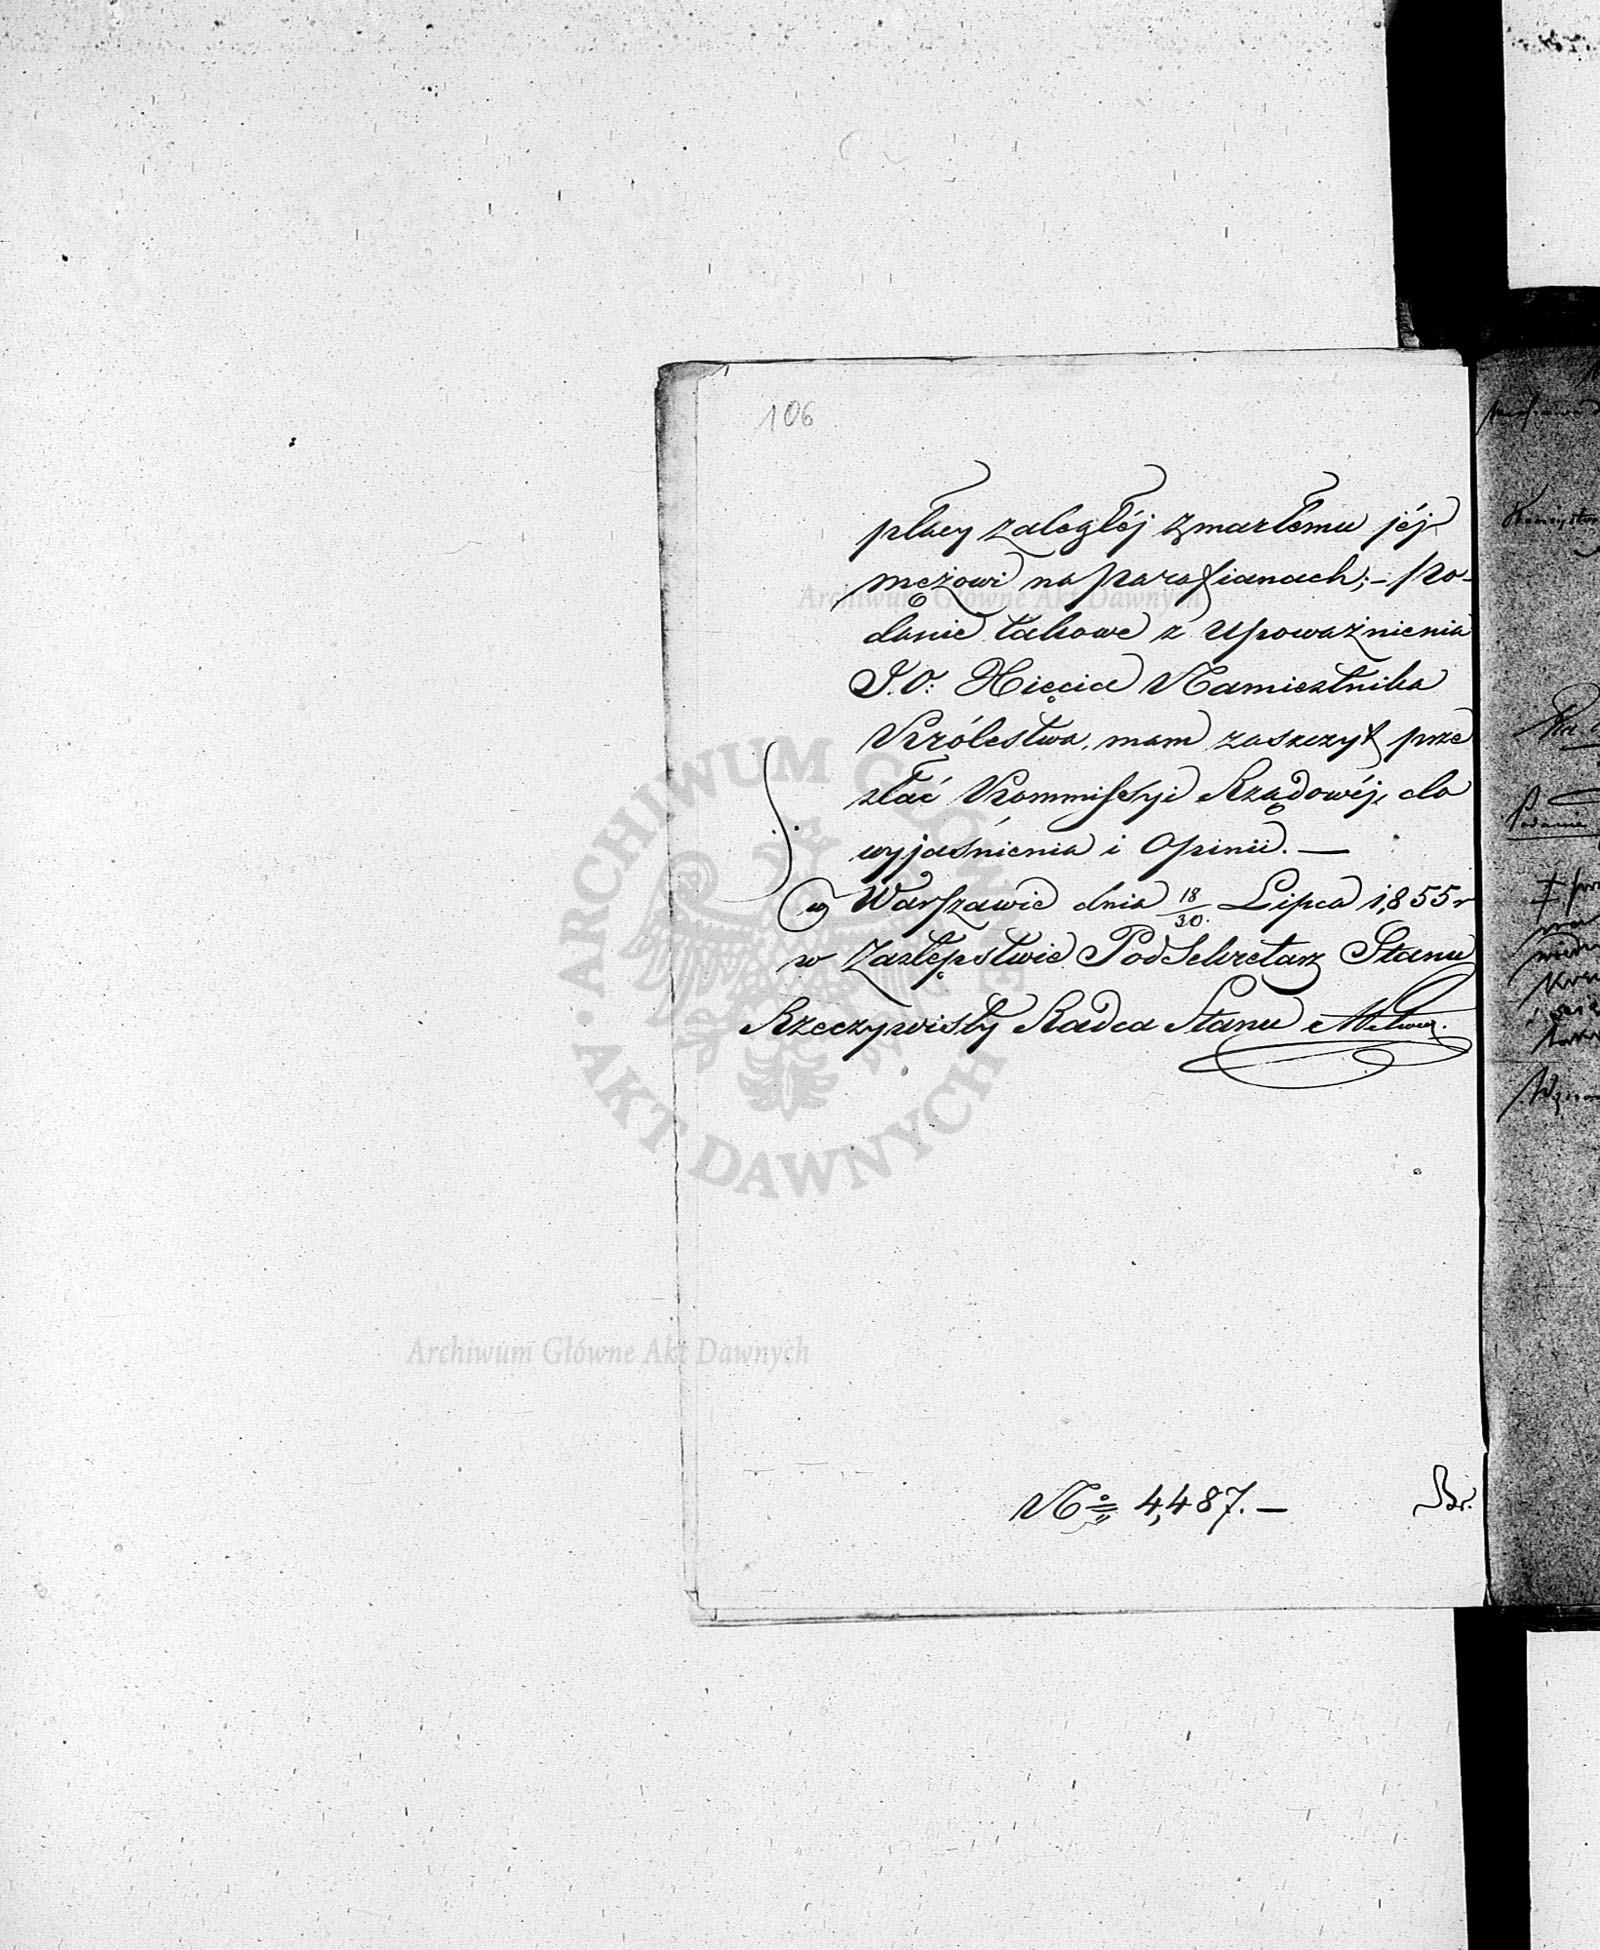 106
płacy zaległéj zmarłemu jéj
mężowi na parafianach; – po-
danie takowe z upoważnienia
J. O: Xięcia Namiestnika
Królestwa, mam zaszczyt prze
słać Kommissyi Rządowéj, do
wyjaśnienia i Opinii. —
w Warszawie dnia 18/30. Lipca 1,855 r
w Zastępstwie PodSekretarz Stanu
Rzeczywisty Radca Stanu
No 4,487. —
Archiwum Główne Akt Dawnych
ARCHIWUM GŁÓWNE
AKT DAWNYCH
Archiwum Główne Akt Dawnych